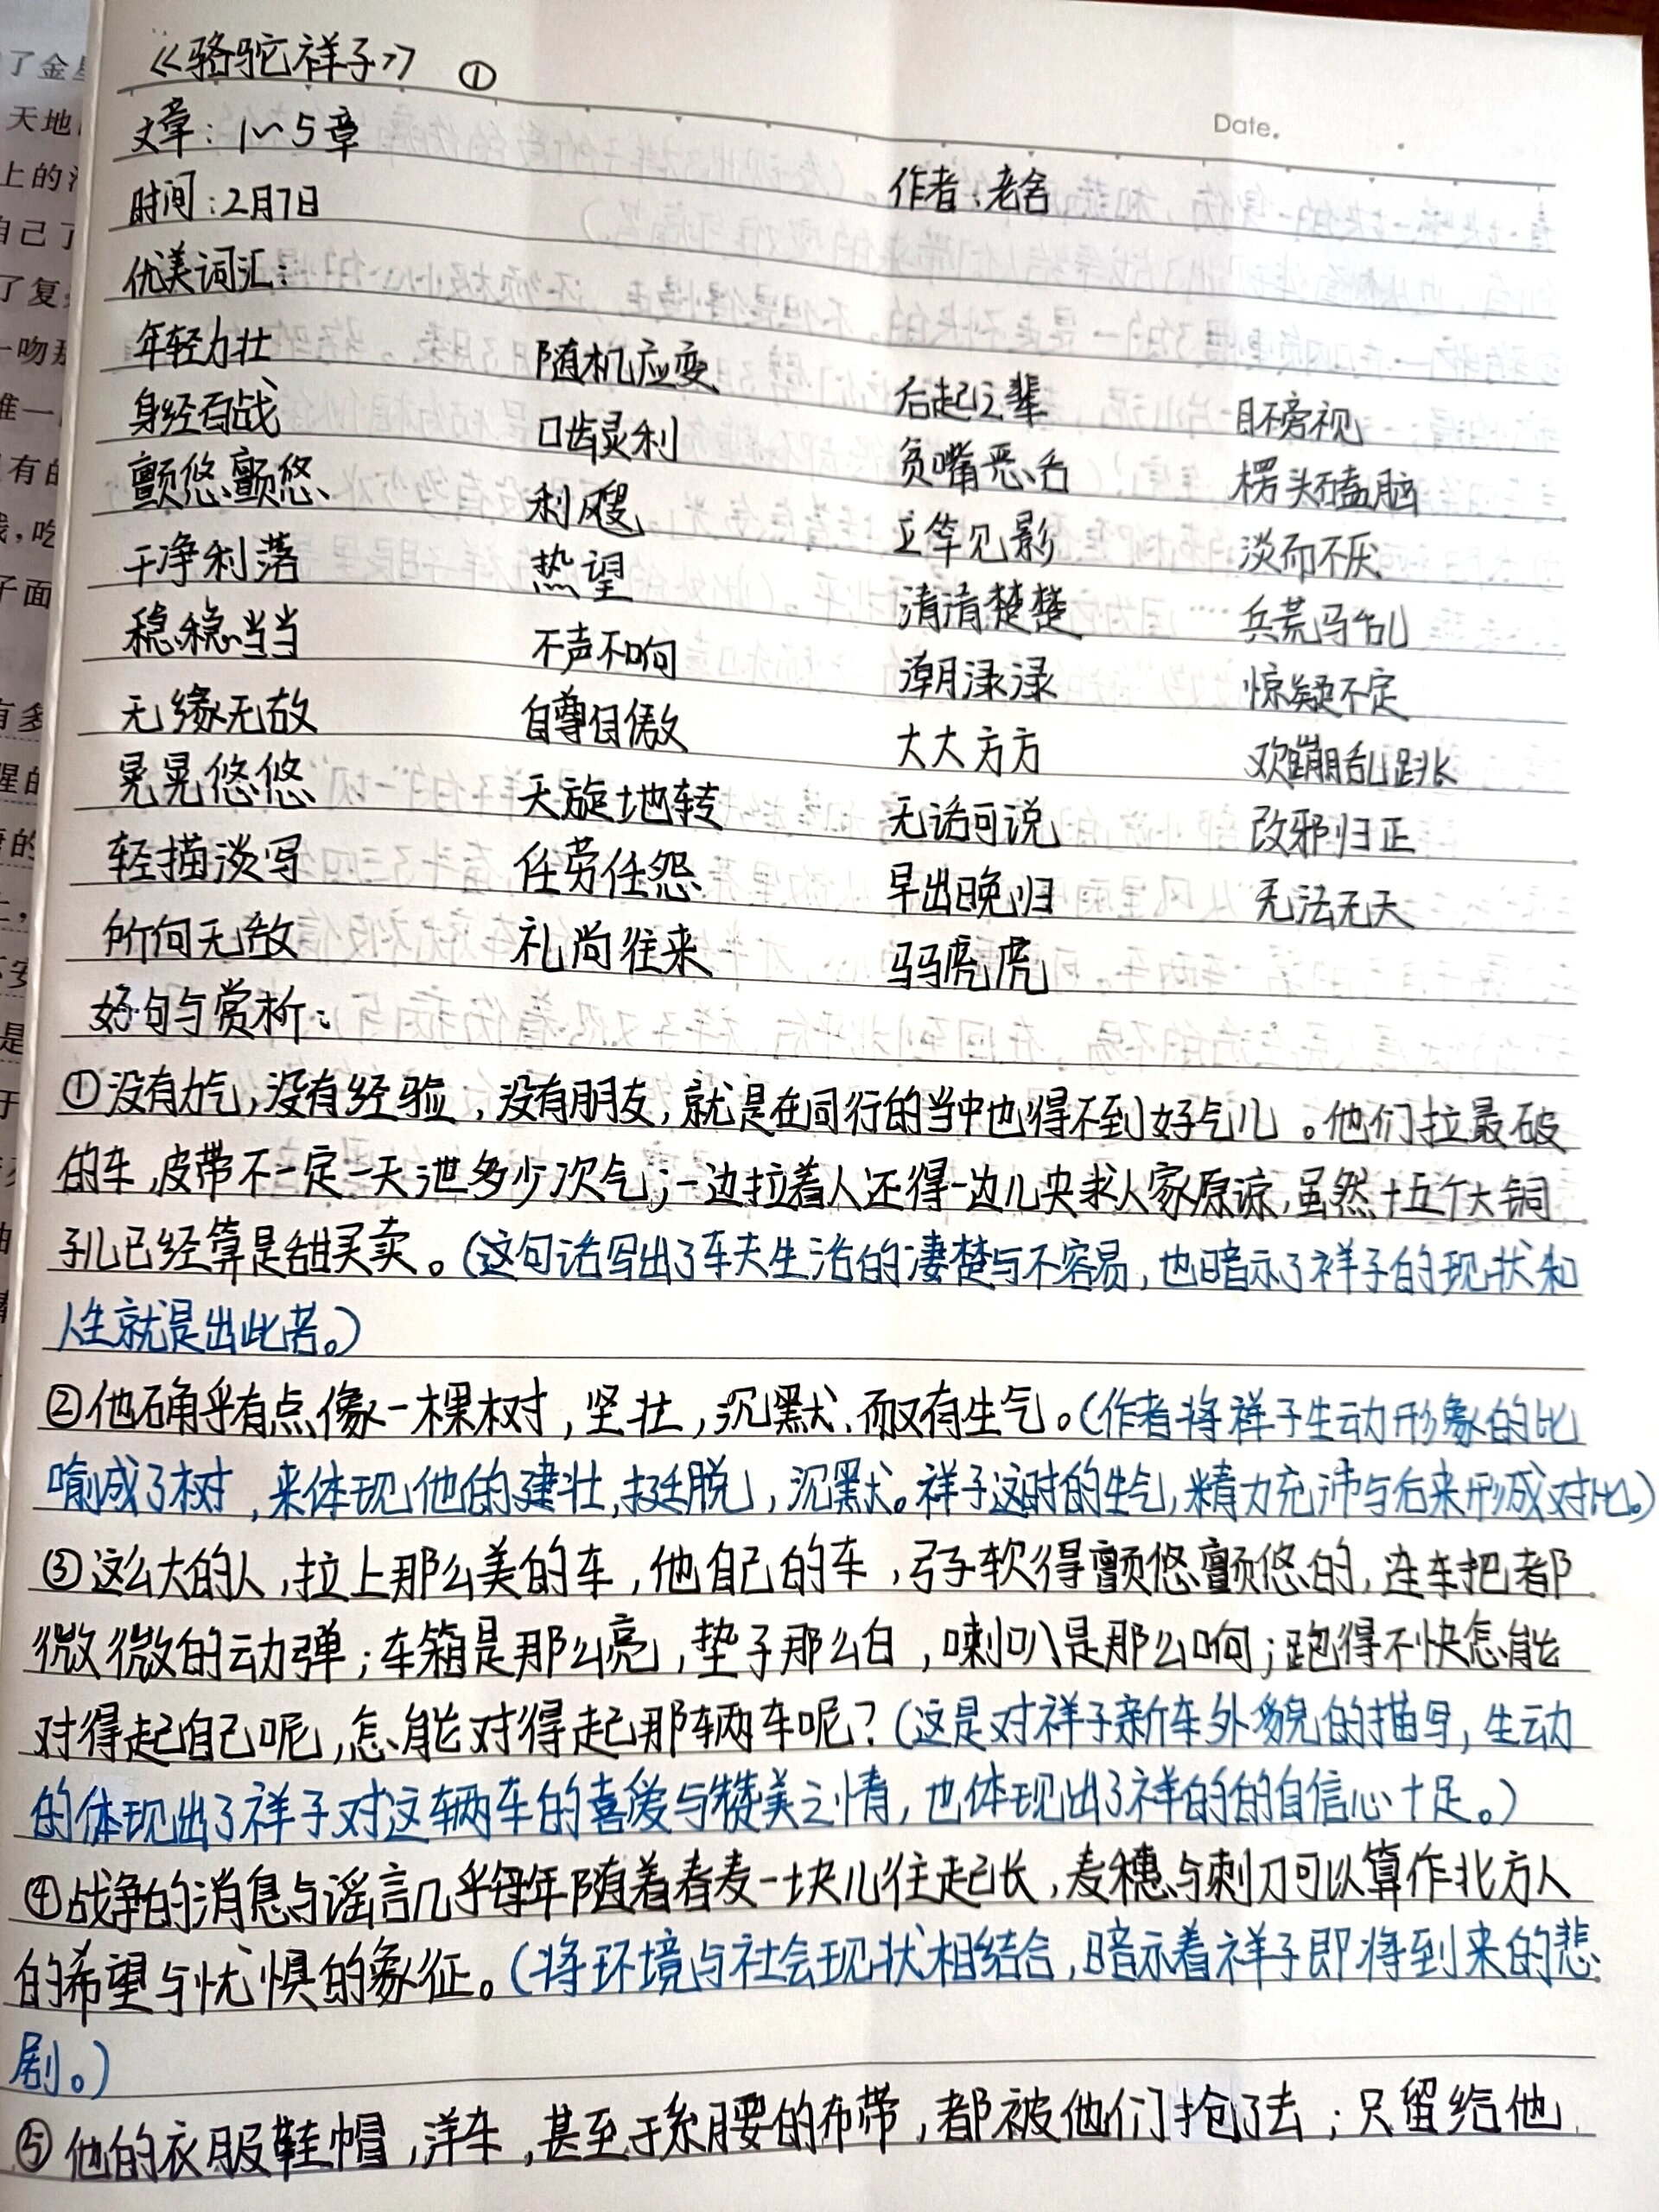 《骆驼祥子》 ①
Date.
文章：1～5章
时间：2月7日 作者：老舍
优美词汇：
年轻力壮 随机应变 后起之辈 目不旁视
身经百战 口齿灵利 贫嘴恶舌 楞头磕脑
颤悠颤悠 利飕 立竿见影 淡而不厌
干净利落 热望 清清楚楚 兵荒马乱
稳稳当当 不声不响 潮渌渌 惊疑不定
无缘无故 自尊自傲 大大方方 欢蹦乱跳
晃晃悠悠 天旋地转 无话可说 改邪归正
轻描淡写 任劳任怨 早出晚归 无法无天
所向无敌 礼尚往来 马马虎虎
好句与赏析：
①没有力气，没有经验，没有朋友，就是在同行的当中也得不到好气儿。他们拉最破
的车，皮带不一定一天泄多少次气；一边拉着人还得一边儿央求人家原谅，虽然十五个大铜
子儿已经算是甜买卖。（这句话写出了车夫生活的凄楚与不容易，也暗示了祥子的现状和
人生就是出此苦。）
②他确乎有点像一棵树，坚壮，沉默，而又有生气。（作者将祥子生动形象的比
喻成了树，来体现他的建壮，挺脱，沉默。祥子这时的生气，精力充沛与后来形成对比。）
③这么大的人，拉上那么美的车，他自己的车，弓子软得颤悠颤悠的，连车把都
微微的动弹；车箱是那么亮，垫子那么白，喇叭是那么响；跑得不快怎能
对得起自己呢，怎能对得起那辆车呢？（这是对祥子新车外貌的描写，生动
的体现出了祥子对这辆车的喜爱与赞美之情，也体现出了祥的的自信心十足。）
④战争的消息与谣言几乎每年随着春麦一块儿往起长，麦穗与刺刀可以算作北方人
的希望与忧惧的象征。（将环境与社会现状相结合，暗示着祥子即将到来的悲
剧。）
⑤他的衣服鞋帽，洋车，甚至于系腰的布带，都被他们抢了去；只留给他